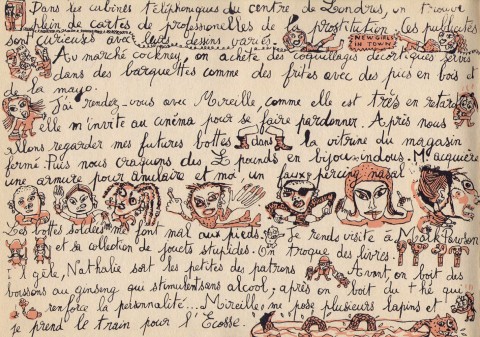 Dans les cabines téléphoniques du centre de Londres, on trouve
plein de cartes de professionnelles de la prostitution. Ces publicités
sont curieuses avec leurs dessins variés.
NEW GIRL
IN TOWN
Au marché cockney, on achète des coquillages décortiqués servis
dans des barquettes comme des frites avec des pics en bois et
de la mayo.
J'ai rendez-vous avec Mireille, comme elle est très en retard
elle m'invite au cinéma pour se faire pardonner. Après nous
allons regarder mes futures bottes dans la vitrine du magasin
fermé. Puis nous craquons des £ pounds en bijoux indous. M acquière
une armure pour anulaire et moi un faux percing nasal
Les bottes soldées me font mal aux pieds. Je rends visite à Mark Pawson
et sa collection de jouets stupides. On troque des livres.
gèle, Nathalie sort les petites des patrons Avant, on boit des
boissons au ginseng qui stimulent sans alcool; après on boit du thé qui
renforce la personnalité... Mireille me pose plusieurs lapins et
je prend le train pour l'Ecosse.